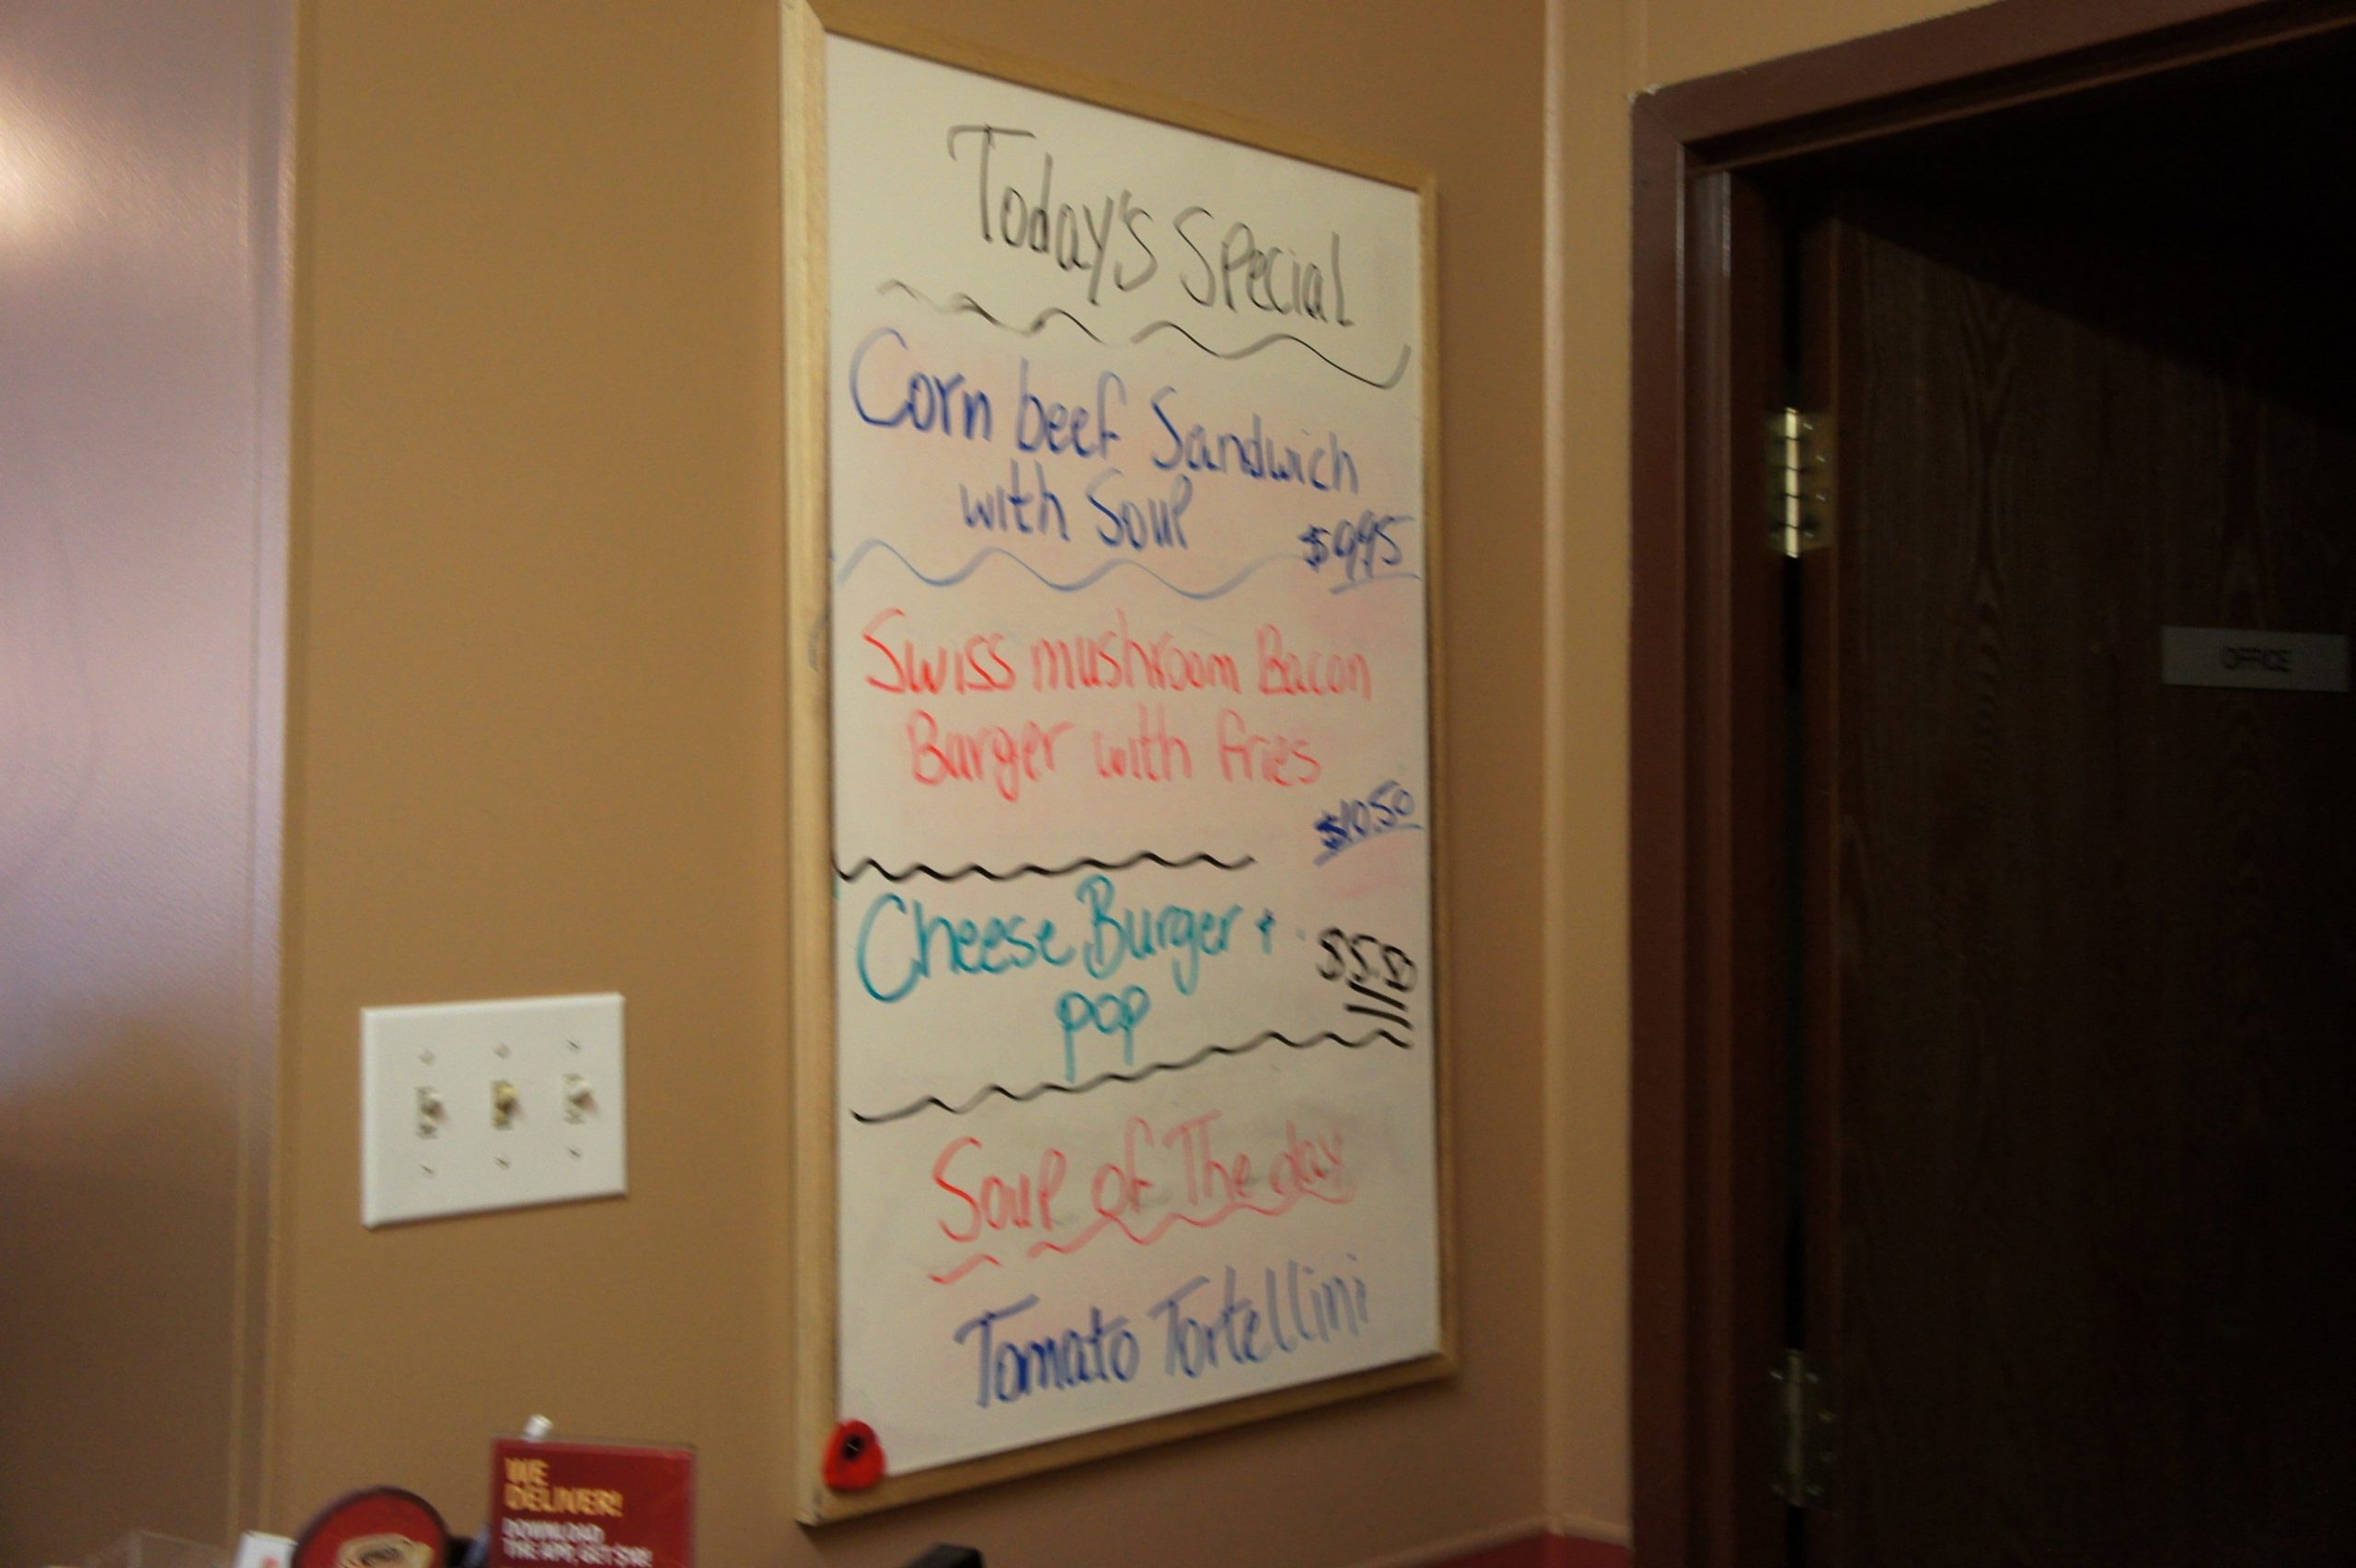 Today's Special
Corn beef Sandwich
with Soup
$9.95
Swiss mushroom Bacon
Burger with fries
$10.50
Cheese Burger +
$5.50
pop
Soup of The day
Tomato Tortellini
OFFICE
WE
DELIVER!
DOWNLOAD
THE APP, GET $10!